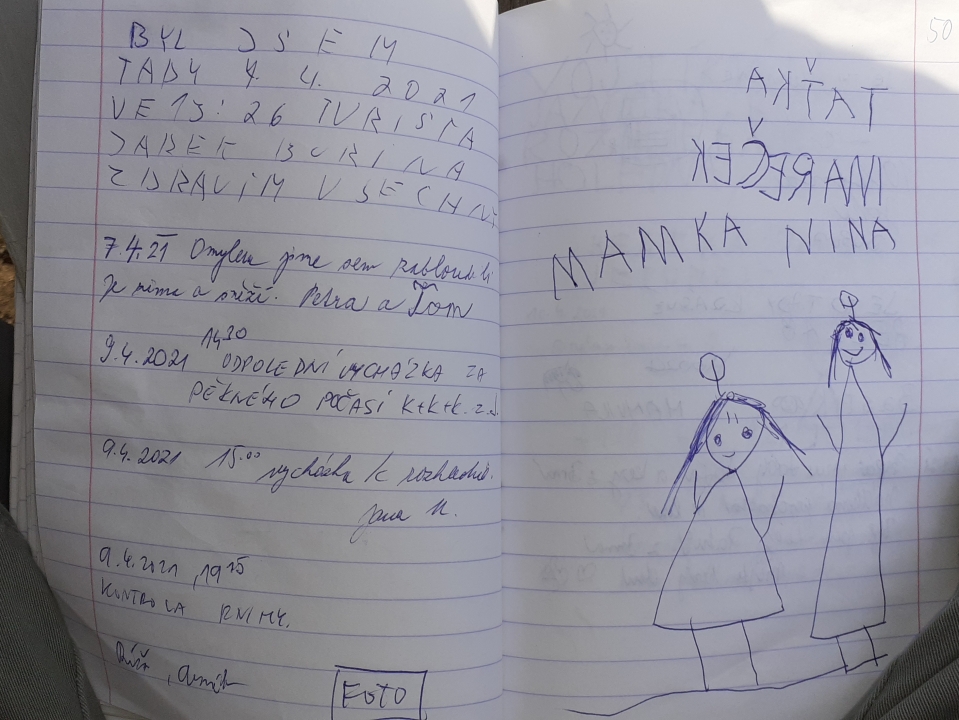 BYL JSEM
TADY 4. 4. 2021
VE 13:26 TURISTA
JAREK BURINA
ZDRAVÍM VŠECHNY
7.4.21 Omylem jsme sem zabloudili
Je zima a sněží. Petra a Tom
9.4.2021 14³⁰ ODPOLEDNÍ VYCHÁZKA ZA
PĚKNÉHO POČASÍ K+K+K. z
9.4.2021 15.⁰⁰ vycházka k rozhledně.
Jana K.
9.4.2021, 19¹⁵
KONTROLA KNIHY.
FOTO
50
TAŤKA
MAREČEK
MAMKA NINA